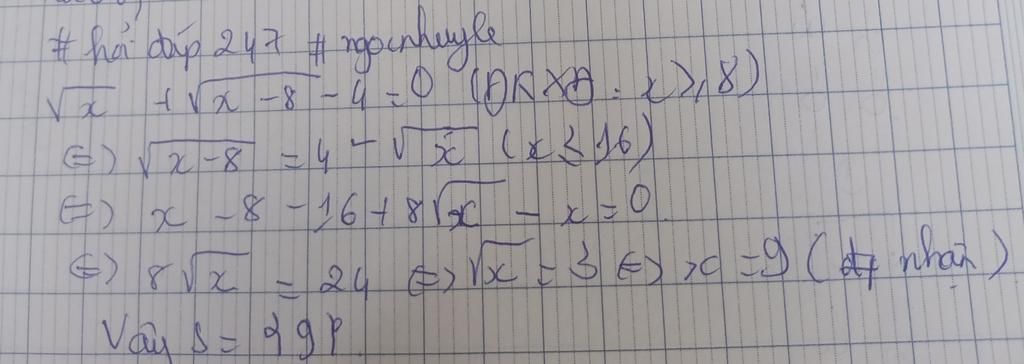 # hỏi đáp 247 # ngocnhuyle
√x + √(x - 8) - 4 = 0 (ĐKXĐ: x ≥ 8)
⇔ √(x - 8) = 4 - √x (x ≤ 16)
⇔ x - 8 - 16 + 8√x - x = 0
⇔ 8√x = 24 ⇔ √x = 3 ⇔ x = 9 (nhận)
Vậy S = {9}